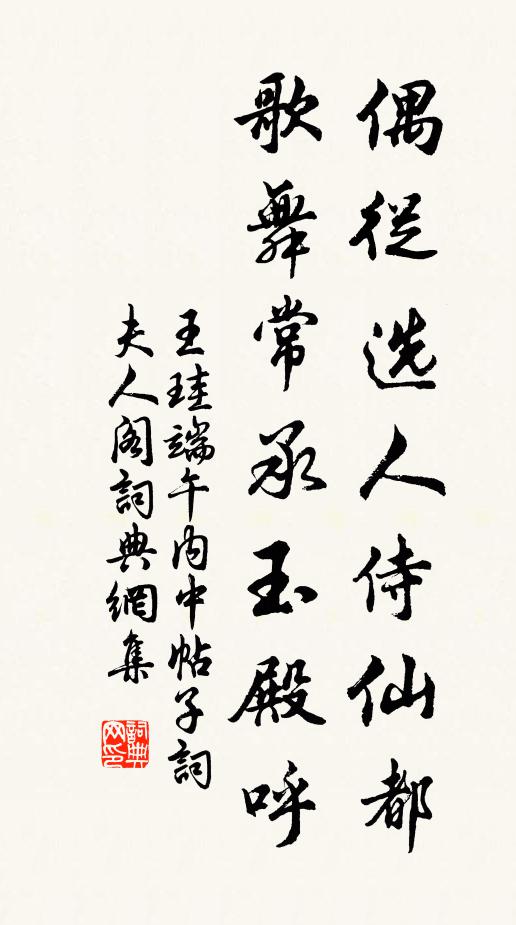 偶從选人侍仙都
歌舞常承玉殿呼
王珪端午内中帖子詞
夫人阁詞典網集
詞典网印